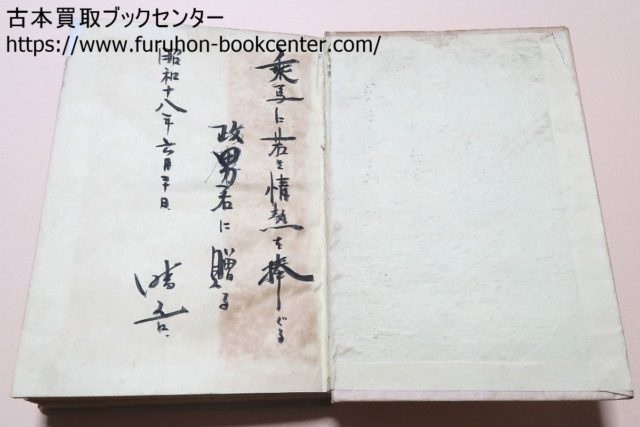 古本買取ブックセンター
https://www.furuhon-bookcenter.com/
乗馬に若き情熱を捧ぐる
政男君に贈る
昭和十八年六月三十日、